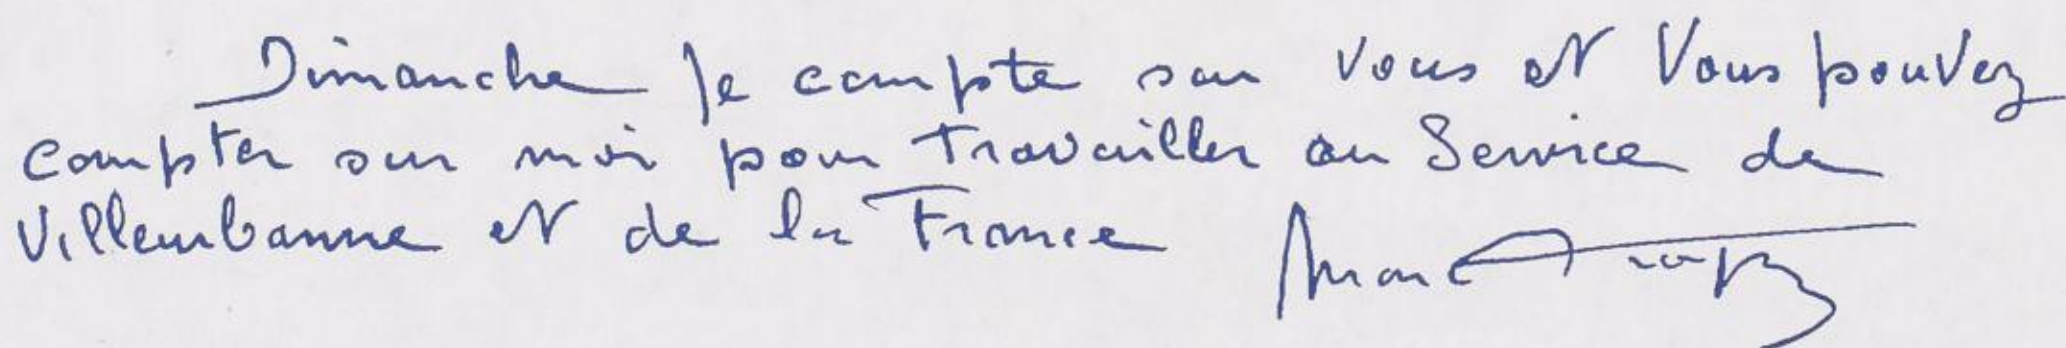 Dimanche Je compte sur Vous et Vous pouvez
compter sur moi pour Travailler au Service de
Villeurbanne et de la France
Marc